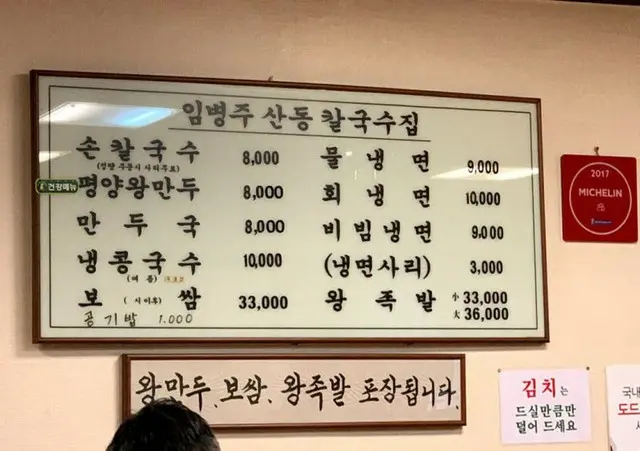 임병주 산동 칼국수집
손칼국수 8,000
평양왕만두 8,000
건강메뉴
만두국 8,000
냉콩국수 10,000
(여름)
보쌈 33,000
공기밥 1.000
물냉면 9,000
회냉면 10,000
비빔냉면 9,000
(냉면사리) 3,000
왕족발 小 33,000
大 36,000
왕만두. 보쌈. 왕족발 포장됩니다.
2017
MICHELIN
김치는
드실만큼만
덜어 드세요
국내